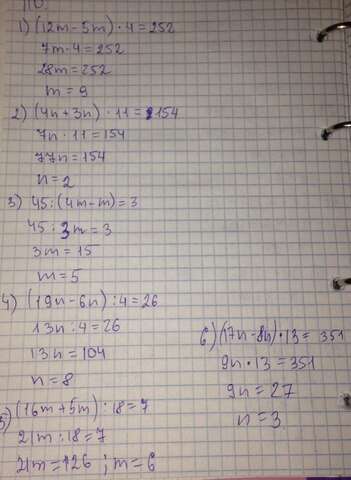 110.
1) (12m-5m)·4=252
7m·4=252
28m=252
m=9
2) (4n+3n)·11=154
7n·11=154
77n=154
n=2
3) 45:(4m-m)=3
45:3m=3
3m=15
m=5
4) (19n-6n):4=26
13n:4=26
13n=104
n=8
5) (16m+5m):18=7
21m:18=7
21m=126; m=6
6) (17n-8n)·13=351
9n·13=351
9n=27
n=3